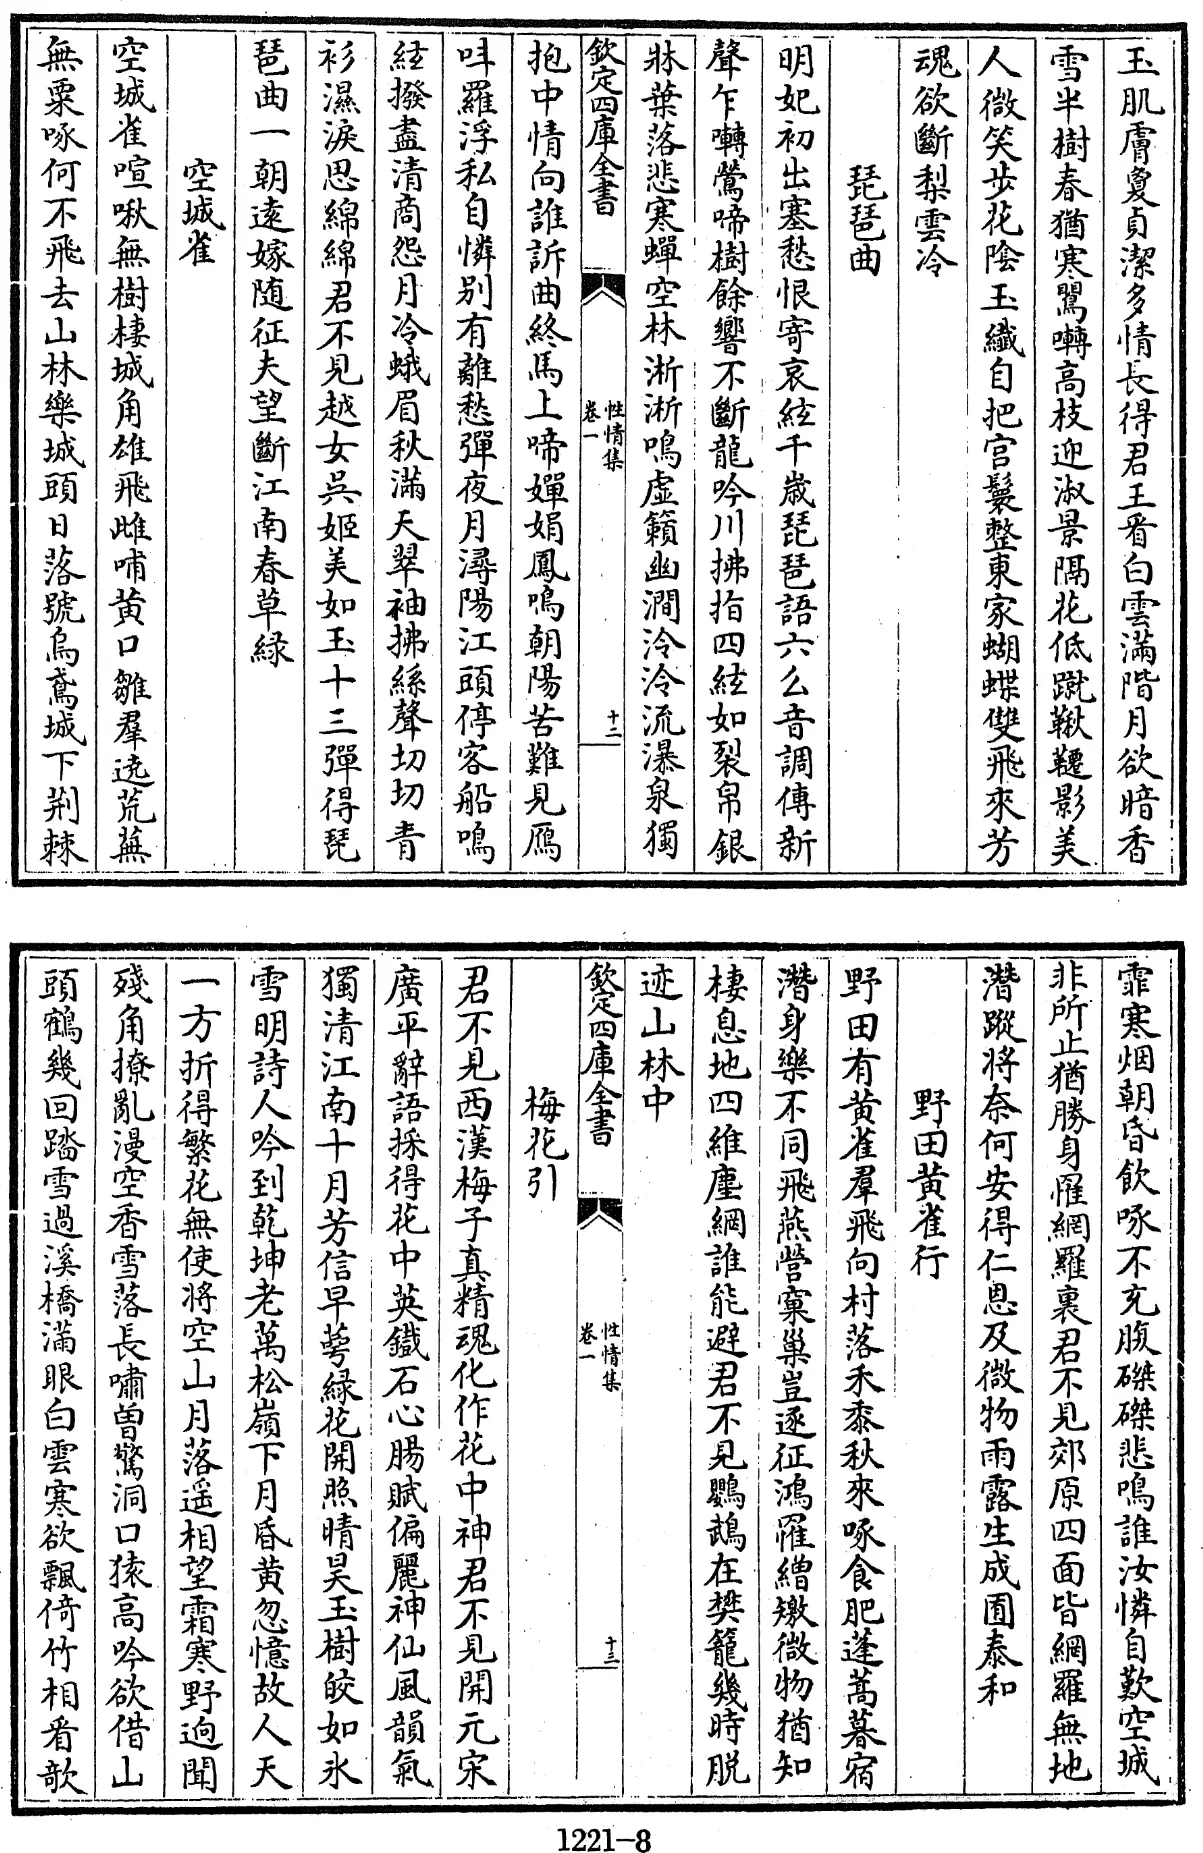 玉肌膚夐貞潔多情長得君王看白雲滿階月欲暗香
雪半樹春猶寒鸎囀高枝迎淑景隔花低蹴鞦韆影美
人微笑步花陰玉纖自把宫鬟整東家蝴蝶雙飛來芳
魂欲斷梨雲冷
琵琶曲
明妃初出塞愁恨寄哀絃千歲琵琶語六么音調傳新
聲乍囀鶯啼樹餘響不斷龍吟川拂指四絃如裂帛銀
牀葉落悲寒蟬空林淅淅鳴虚籟幽澗泠泠流瀑泉獨
欽定四庫全書
性情集
卷一
十二
抱中情向誰訴曲終馬上啼嬋娟鳳鳴朝陽苦難見鴈
呌羅浮私自憐别有離愁彈夜月潯陽江頭停客船鳴
絃撥盡清商怨月冷蛾眉秋滿天翠袖拂絲聲切切青
衫濕淚思綿綿君不見越女吳姬美如玉十三彈得琵
琶曲一朝逺嫁随征夫望斷江南春草緑
空城雀
空城雀喧啾無樹棲城角雄飛雌哺黄口雛羣遶荒蕪
無粟啄何不飛去山林樂城頭日落號烏鳶城下荆棘
霏寒烟朝昏飲啄不充腹磔磔悲鳴誰汝憐自歎空城
非所止猶勝身罹網羅裏君不見郊原四面皆網羅無地
潛蹤将奈何安得仁恩及微物雨露生成囿泰和
野田黄雀行
野田有黄雀羣飛向村落禾黍秋來啄食肥蓬蒿暮宿
潛身樂不同飛燕營窠巢豈逐征鴻罹繒繳微物猶知
棲息地四維塵網誰能避君不見鸚鵡在樊籠幾時脱
迹山林中
欽定四庫全書
性情集
卷一
十三
梅花引
君不見西漢梅子真精魂化作花中神君不見開元宋
廣平辭語採得花中英鐵石心腸賦偏麗神仙風韻氣
獨清江南十月芳信早萼緑花開照晴昊玉樹皎如氷
雪明詩人吟到乾坤老萬松嶺下月昏黄忽憶故人天
一方折得繁花無使将空山月落遥相望霜寒野迥聞
殘角撩亂漫空香雪落長嘯曽驚洞口猿高吟欲借山
頭鶴幾回踏雪過溪橋滿眼白雲寒欲飄倚竹相看歌
1221-8